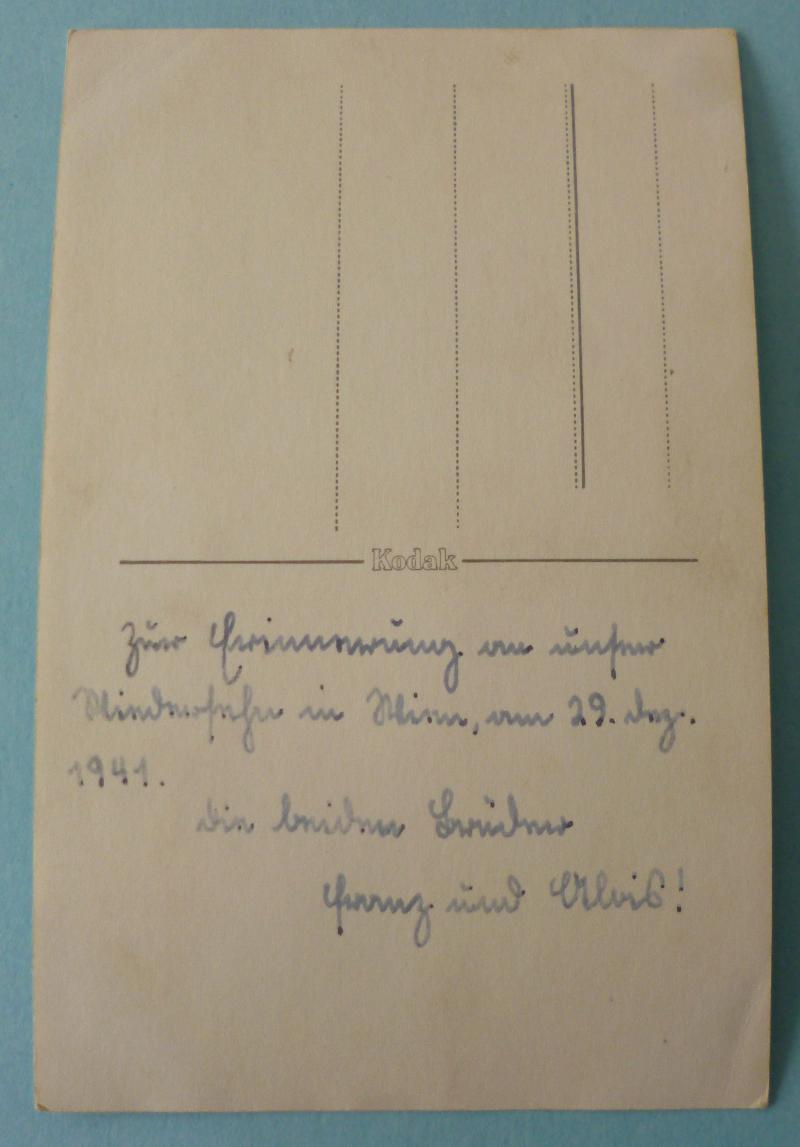 Kodak
Zur Erinnerung an unser
Wiedersehn in Wien, am 29. Dez.
1941.
Die beiden Brüder
Franz und Alois!